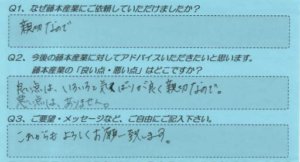 Q1、なぜ藤本産業にご依頼していただけましたか?
親切なので
Q2、今後の藤本産業に対してアドバイスいただきたいと思います。
藤本産業の「良い点・悪い点」はどこですか?
良い点は、いろいろと気くばりが良く親切なので。
悪い点は、ありません。
Q3、ご要望・メッセージなど、ご自由にご記入下さい。
これからもよろしくお願い致します。